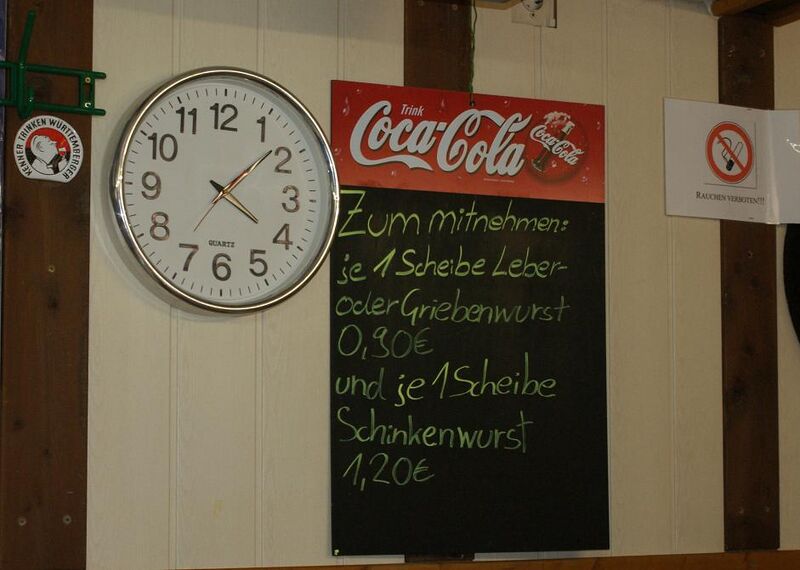 KENNER TRINKEN WÜRTTEMBERGER
12
1
2
3
4
5
6
7
8
9
10
11
QUARTZ
Trink
Coca-Cola
Coca-Cola
Zum mitnehmen:
je 1 Scheibe Leber-
oder Griebenwurst
0,90€
und je 1 Scheibe
Schinkenwurst
1,20€
RAUCHEN VERBOTEN!!!